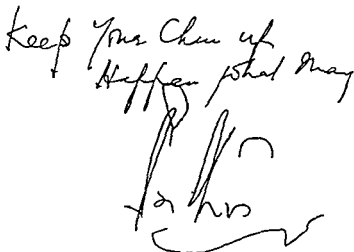 Keep Your Chin up
Happen what may